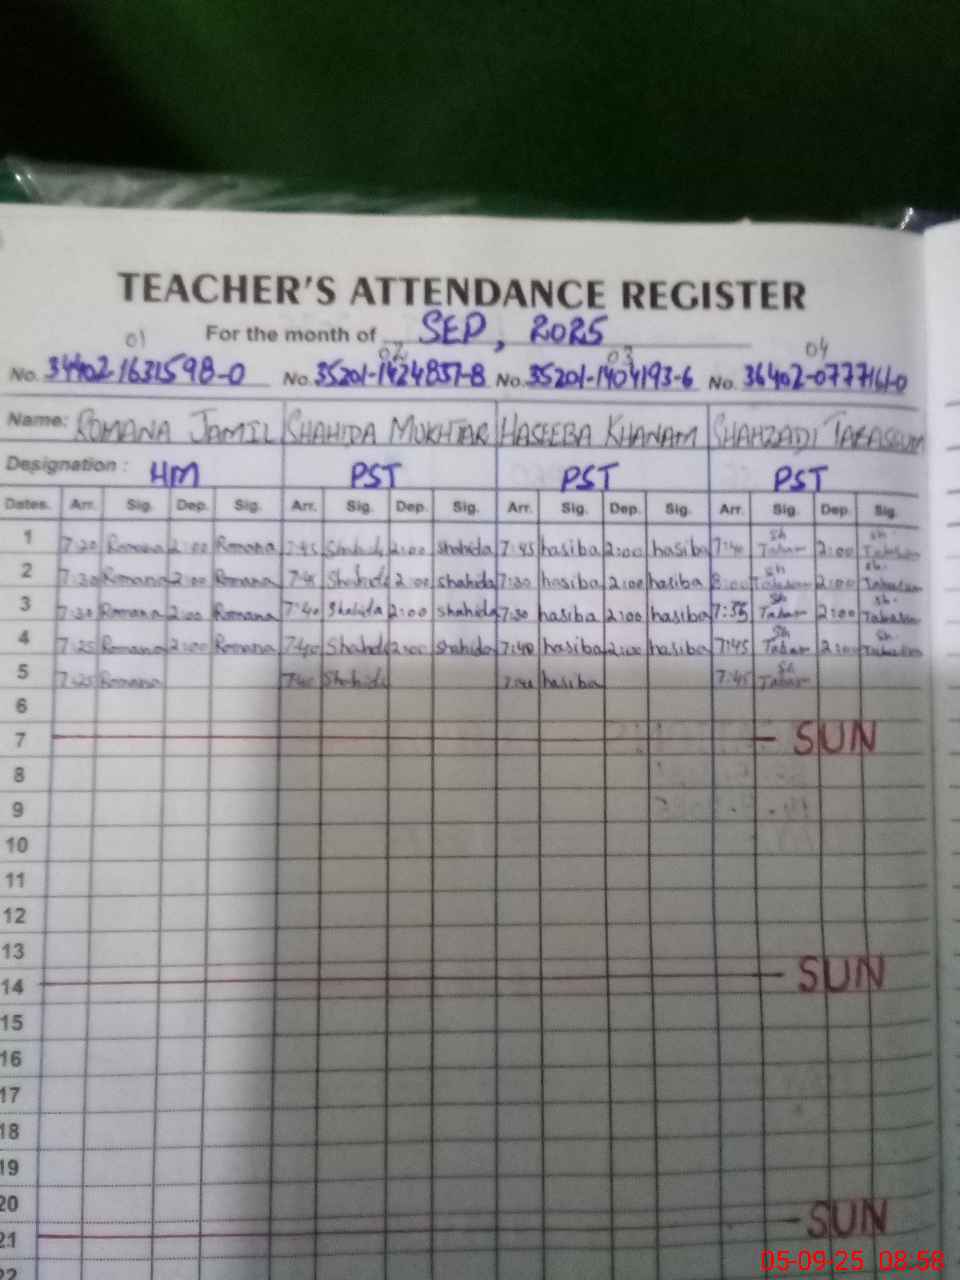 TEACHER'S ATTENDANCE REGISTER
For the month of SEP, 2025
01 02 03 04
No. 34402-1631598-0 No. 35201-1424857-8 No. 35201-1404193-6 No. 36402-0777161-0
Name: ROMANA JAMIL SHAHIDA MUKHTAR HASEEBA KHANAM SHAHZADI TABASSUM
Designation : HM PST PST PST
Dates. Arr. Sig. Dep. Sig. Arr. Sig. Dep. Sig. Arr. Sig. Dep. Sig. Arr. Sig. Dep. Sig.
1 7:20 Romana 2:00 Romana 7:45 Shahida 2:00 shahida 7:45 hasiba 2:00 hasiba 7:40 Sh 2:00 Sh
2 7:30 Romana 2:00 Romana 7:45 Shahida 2:00 shahida 7:30 hasiba 2:00 hasiba 8:00 Sh 2:00 Sh.
3 7:30 Romana 2:00 Romana 7:40 Shahida 2:00 shahida 7:30 hasiba 2:00 hasiba 7:35 Sh 2:00 Sh.
4 7:25 Romana 2:00 Romana 7:40 Shahida 2:00 shahida 7:40 hasiba 2:00 hasiba 7:45 Sh 2:00 Sh.
5 7:25 Romana 7:40 Shahida 7:40 hasiba 7:45 Sh
6
7 SUN
8
9
10
11
12
13
14 SUN
15
16
17
18
19
20
21 SUN
22
05-09-25 08:58